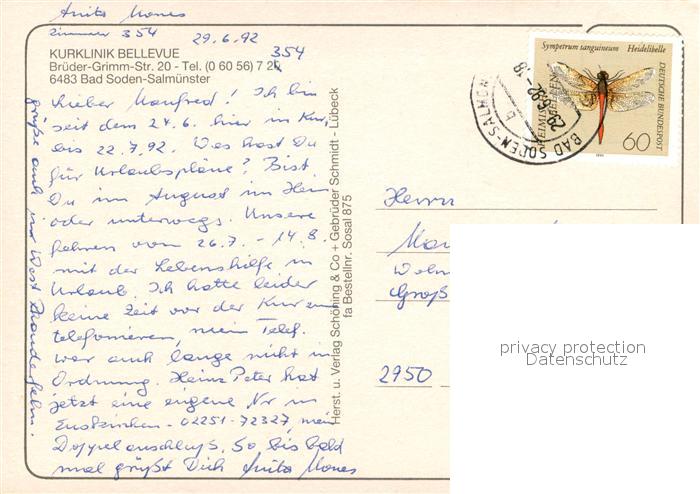 Anita Mones
Zimmer 354 29.6.92
KURKLINIK BELLEVUE 354
Brüder-Grimm-Str. 20 - Tel. (0 60 56) 7 20
6483 Bad Soden-Salmünster
Lieber Manfred! Ich bin
seit dem 24.6. hier in Kur,
bis 22.7.92. Was hast Du
für Urlaubspläne? Bist
Du im August im Heim
oder unterwegs. Unsere
fahren vom 26.7. - 14.8.
mit der Lebenshilfe in
Urlaub. Ich hatte leider
keine Zeit vor der Kur zu
telefonieren, mein Telef.
war auch lange nicht in
Ordnung. Heinz Peter hat
jetzt eine eigene Nr in
Euskirchen - 02251-72327, mein
Doppelanschluß. So bis bald
mal grüßt Dich Anita Mones
grüße auch mir West Rhauderfehn.
Herst. u. Verlag Schöning & Co + Gebrüder Schmidt - Lübeck
fa Bestellnr. Sosal 875
Sympetrum sanguineum Heidelibelle
DEUTSCHE BUNDESPOST
60
BAD SODEN-SALMÜN
Herrn
Wohn
Groß
2950
privacy protection
Datenschutz